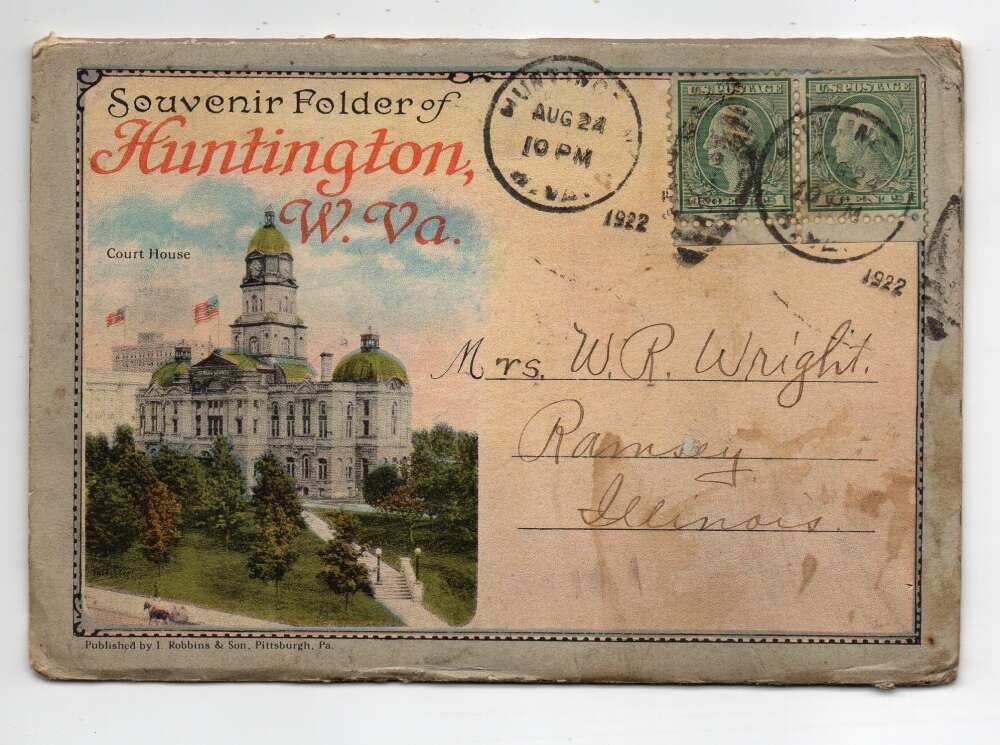 Souvenir Folder of
Huntington,
W. Va.
Court House
AUG 24
10 PM
W.VA.
1922
U.S. POSTAGE
1
U.S. POSTAGE
1922
Mrs. W. R. Wright.
Ramsey
Illinois.
Published by I. Robbins & Son, Pittsburgh, Pa.